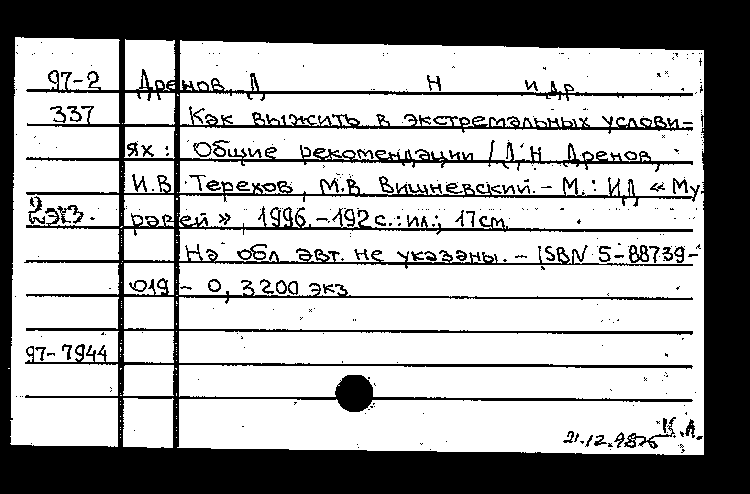 97-2 Дренов, Д Н и др
337 Как выжить в экстремальных услови-
ях: Общие рекомендации / Д.Н Дренов,
И.В Терехов, М.В Вишневский. - М.: ИД «Му
2 экз. равей», 1996. - 192 с.: ил.; 17 см
На обл авт. не указаны. - ISBN 5-88739-
019 - 0, 3200 экз
97-7944
К.А.
21.12.